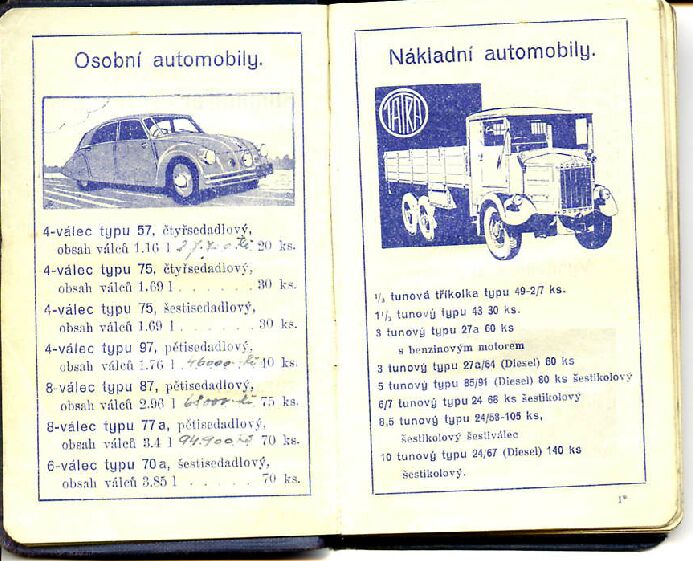 Osobní automobily.
4-válec typu 57, čtyřsedadlový,
obsah válců 1.16 l 20 ks.
4-válec typu 75, čtyřsedadlový,
obsah válců 1.69 l . . . . . . . 30 ks.
4-válec typu 75, šestisedadlový,
obsah válců 1.69 l . . . . . . . 30 ks.
4-válec typu 97, pětisedadlový,
obsah válců 1.76 l 46000 Kč 40 ks.
8-válec typu 87, pětisedadlový,
obsah válců 2.96 l 68000 Kč 75 ks.
8-válec typu 77a, pětisedadlový,
obsah válců 3.4 l 94.900 Kč 70 ks.
6-válec typu 70a, šestisedadlový,
obsah válců 3.85 l . . . . . . 70 ks.
Nákladní automobily.
TATRA
tunová tříkolka typu 49-2/7 ks.
1½ tunový typu 43 30 ks.
3 tunový typu 27a 60 ks
s benzinovým motorem
3 tunový typu 27a/64 (Diesel) 60 ks
5 tunový typu 85/91 (Diesel) 80 ks šestikolový
6/7 tunový typu 24 68 ks šestikolový
8,5 tunový typu 24/58-105 ks,
šestikolový šestiválec
10 tunový typu 24,67 (Diesel) 140 ks
šestikolový.
1*